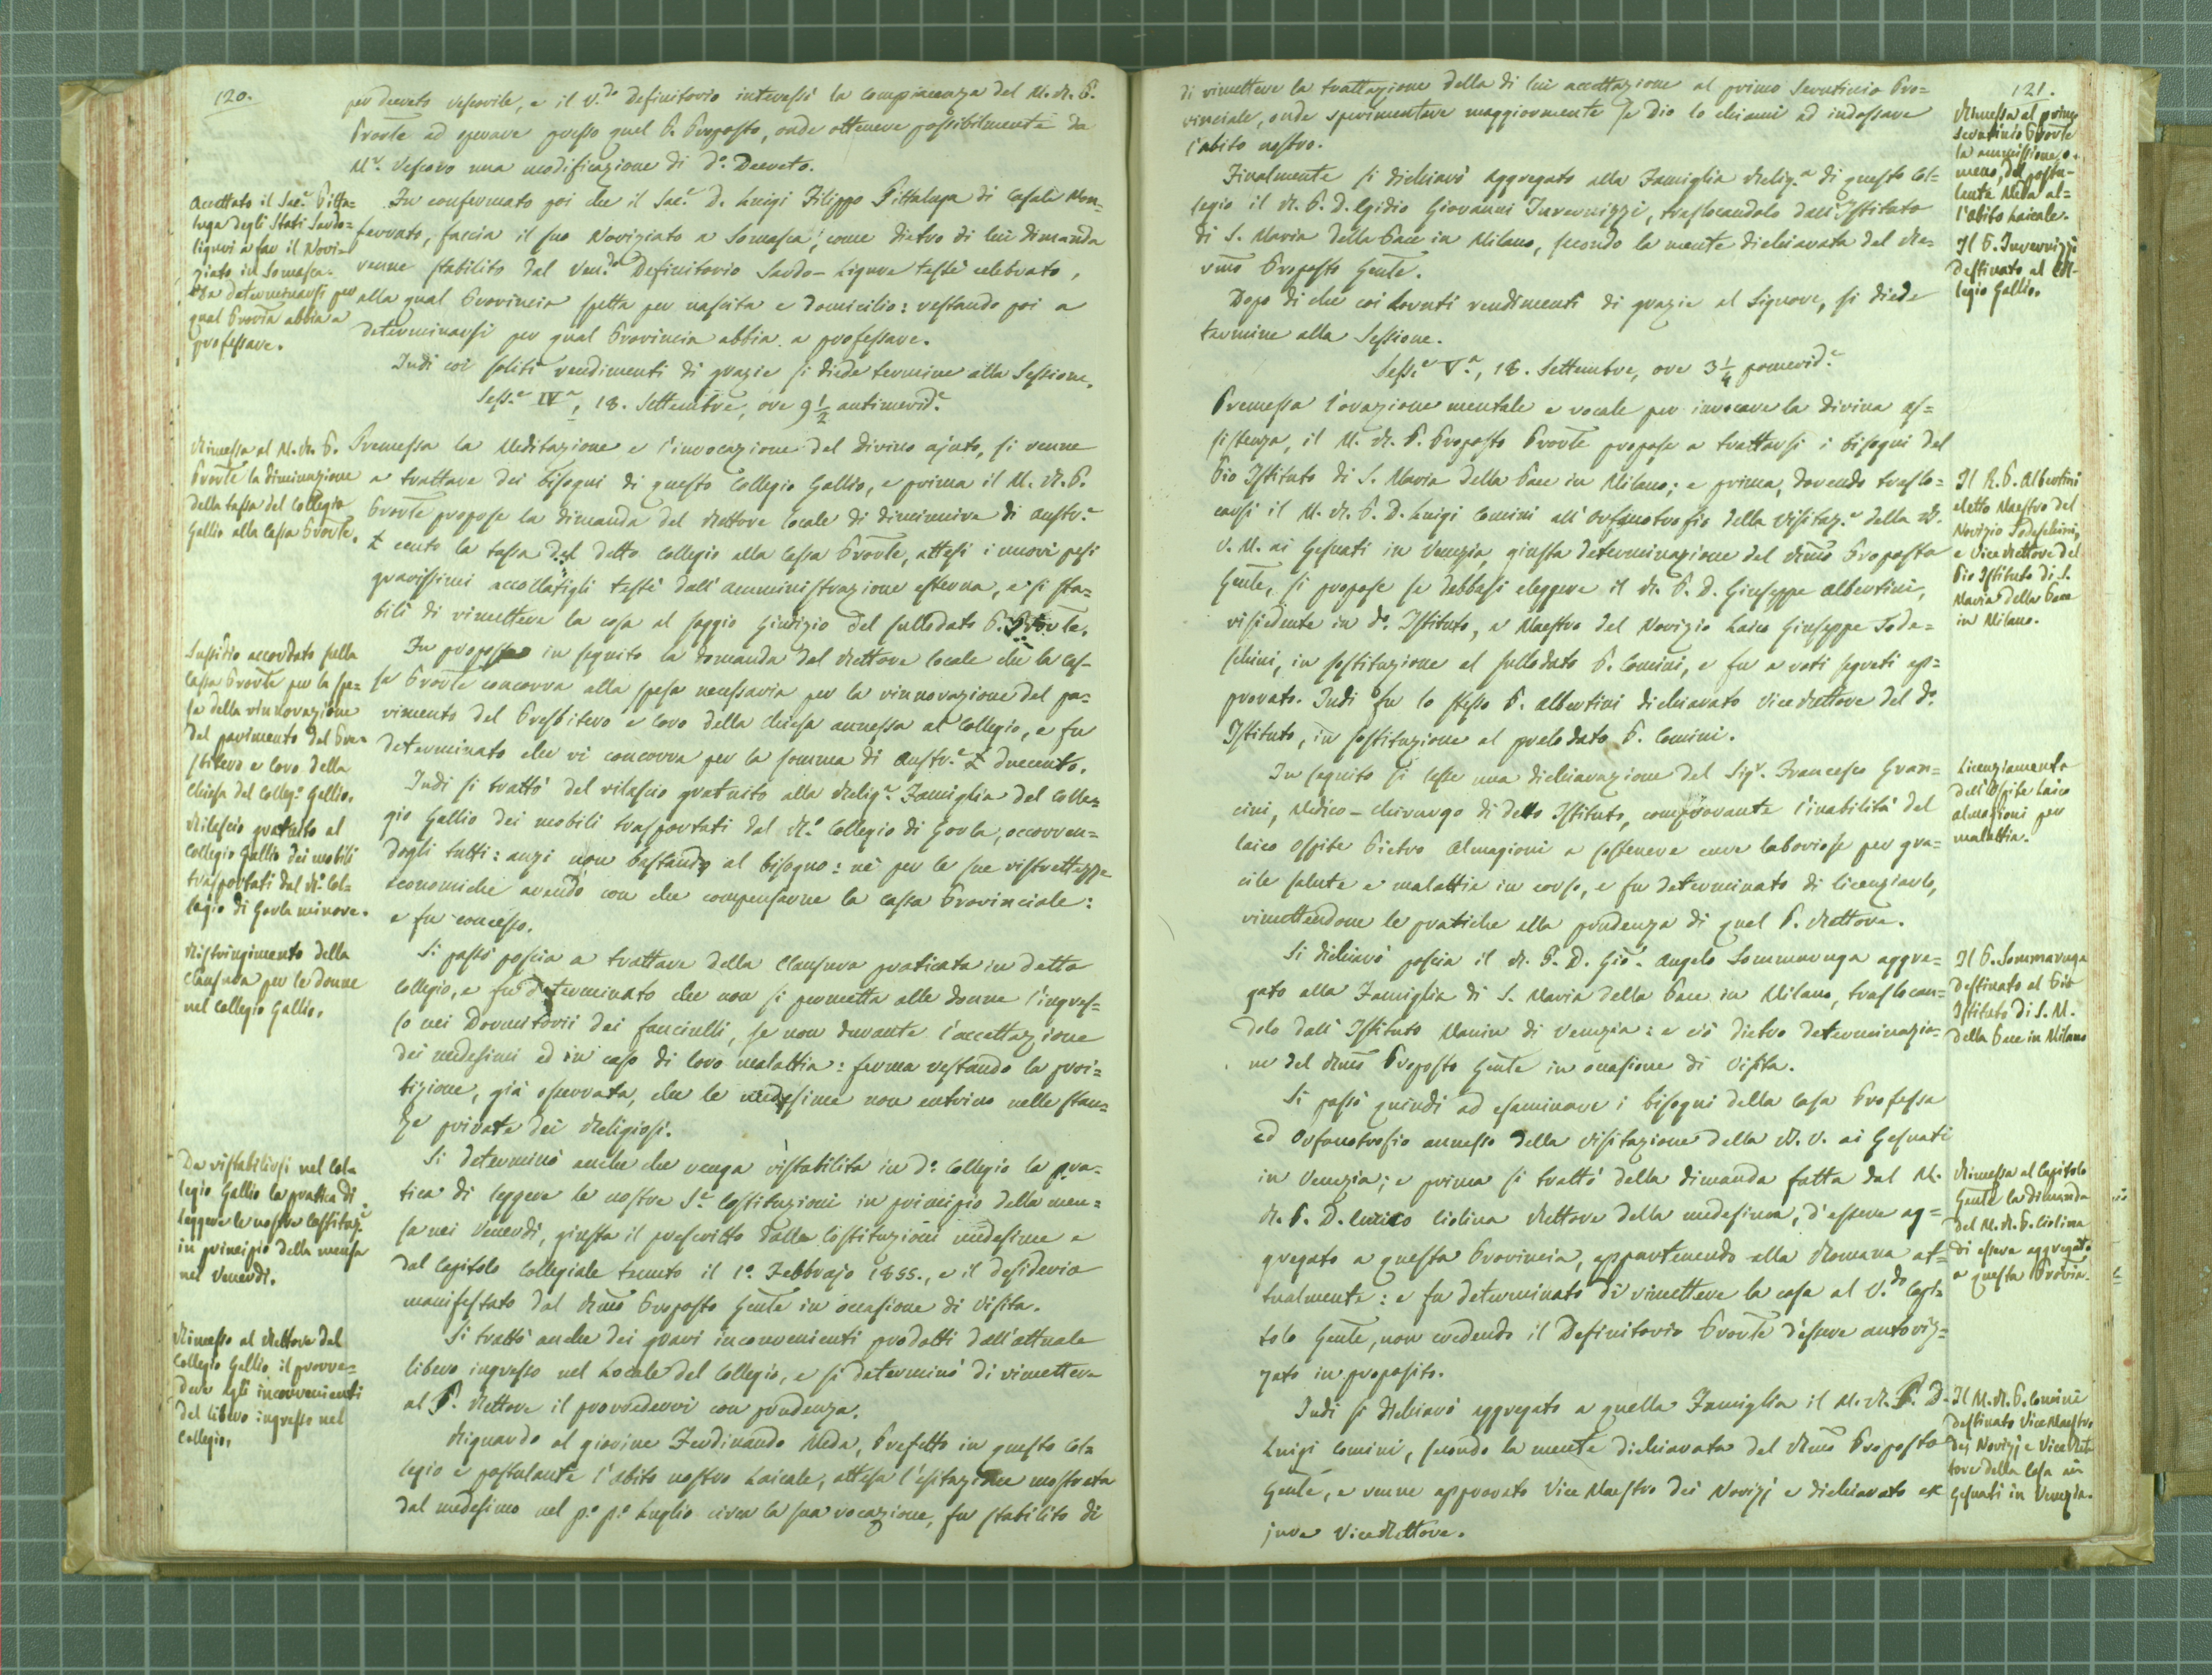 120.
per decreto vescovile, e il V.do Definitorio interessò la compiacenza del M. R. P.
Provle ad operare presso quel P. Preposto, onde ottenere possibilmente da
Mr. Vescovo una modificazione di do. Decreto.
Accettato il Sac.e Pitta-
luga degli Stati Sardo-
liguri a far il Novi-
ziato in Somasca.
Da determinarsi per
qual Provia abbia a
professare.
Fu confermato poi che il Sac.e D. Luigi Filippo Pittaluga di Casale Mon-
ferrato, faccia il suo Noviziato a Somasca, come dietro di lui dimanda
venne stabilito dal Ven.do Definitorio Sardo-Ligure testè celebrato,
alla qual Provincia spetta per nascita e domicilio: restando poi a
determinarsi per qual Provincia abbia a professare.
Indi coi soliti rendimenti di grazie si diede termine alla Sessione.
Sess.e IV.a, 18. Settembre, ore 9 1/2 antimerid.e
Rimessa al M. R. P.
Provle la diminuzione
della tassa del Collegio
Gallio alla Cassa Provle.
Premessa la Meditazione e l'invocazione del divino ajuto, si venne
a trattare dei bisogni di questo Collegio Gallio, e prima il M. R. P.
Provle propose la dimanda del Rettore locale di diminuire di austr.e
£ cento la tassa del detto Collegio alla Cassa Provle, attesi i nuovi pesi
gravissimi accollatigli testè dall'amministrazione esterna, e si sta-
bilì di rimettere la cosa al saggio giudizio del sullodato P. Provle.
Sussidio accordato sulla
Cassa Provle per la spe-
sa della rinnovazione
del pavimento del Pre-
sbitero e Coro della
Chiesa del Colleg.o Gallio.
Fu proposta in seguito la domanda del Rettore locale che la Cas-
sa Provle concorra alla spesa necessaria per la rinnovazione del pa-
vimento del Presbitero e Coro della Chiesa annessa al Collegio, e fu
determinato che vi concorra per la somma di Austr.e £ ducento.
Rilascio gratuito al
Collegio Gallio dei mobili
trasportati dal R.o Col-
legio di Gorla minore.
Indi si trattò del rilascio gratuito alla Relig.a Famiglia del Colle-
gio Gallio dei mobili trasportati dal R.o Collegio di Gorla, occorren-
dogli tutti: anzi non bastando al bisogno: nè per le sue ristrettezze
economiche avendo con che compensarne la Cassa Provinciale:
e fu concesso.
Ristringimento della
Clausura per le donne
nel Collegio Gallio.
Si passò poscia a trattare della Clausura praticata in detto
Collegio, e fu determinato che non si permetta alle donne l'ingres-
so nei Dormitorii dei fanciulli, se non durante l'accettazione
dei medesimi ed in caso di loro malattia: ferma restando la proi-
bizione, già osservata, che le medesime non entrino nelle stan-
ze private dei Religiosi.
Da ristabilirsi nel Col-
legio Gallio la pratica di
leggere le nostre Costituz.i
in principio della mensa
nel Venerdì.
Si determinò anche che venga ristabilita in do. Collegio la pra-
tica di leggere le nostre S.e Costituzioni in principio della men-
sa nei Venerdì, giusta il prescritto dalle Costituzioni medesime e
dal Capitolo Collegiale tenuto il 1o. Febbrajo 1855., e il desiderio
manifestato dal Rmo Preposto Gente in occasione di Visita.
Rimesso al Rettore del
Collegio Gallio il provve-
dere agli inconvenienti
del libero ingresso nel
Collegio.
Si trattò anche dei gravi inconvenienti prodotti dall'attuale
libero ingresso nel Locale del Collegio, e si determinò di rimettere
al P. Rettore il provvedervi con prudenza.
Riguardo al giovine Ferdinando Meda, Prefetto in questo Col-
legio e postulante l'abito nostro Laicale, attesa l'esitazione mostrata
dal medesimo nel p.o p.o Luglio circa la sua vocazione, fu stabilito di
121.
di rimettere la trattazione della di lui accettazione al primo Scrutinio Pro-
vinciale, onde sperimentare maggiormente se Dio lo chiami ad indossare
l'abito nostro.
Rimessa al primo
Scrutinio Provle
la ammissione, o
meno, del postu-
lante Meda al-
l'abito Laicale.
Finalmente si dichiarò aggregato alla Famiglia Relig.a di questo Col-
legio il R. P. D. Egidio Giovanni Invernizzi, traslocandolo dall'Istituto
di S. Maria della Pace in Milano, secondo la mente dichiarata del Re-
vmo Preposto Gente.
Il P. Invernizzi
destinato al Col-
legio Gallio.
Dopo di che coi dovuti rendimenti di grazie al Signore, si diede
termine alla Sessione.
Sess.e V.a, 18. Settembre, ore 3 1/4 pomerid.e
Premessa l'orazione mentale e vocale per invocare la divina as-
sistenza, il M. R. P. Preposto Provle propose a trattarsi i bisogni del
Pio Istituto di S. Maria della Pace in Milano; e prima, dovendo traslo-
carsi il M. R. P. D. Luigi Comini all'Orfanotrofio della Visitaz.e della B.
V. M. ai Gesuati in Venezia, giusta determinazione del Rmo Preposto
Gente, si propose se debbasi eleggere il R. P. D. Giuseppe Albertini,
risiedente in do. Istituto, a Maestro del Novizio Laico Giuseppe Tode-
schini, in sostituzione al sullodato P. Comini, e fu a voti segreti ap-
provato. Indi fu lo stesso P. Albertini dichiarato ViceRettore del do.
Istituto, in sostituzione al prelodato P. Comini.
Il R. P. Albertini
eletto Maestro del
Novizio Todeschini,
e ViceRettore del
Pio Istituto di S.
Maria della Pace
in Milano.
In seguito si lesse una dichiarazione del Sigr. Francesco Gran-
cini, Medico-Chirurgo di detto Istituto, comprovante l'inabilità del
laico ospite Pietro Almagioni a sostenere cure laboriose per gra-
cile salute e malattie in corso, e fu determinato di licenziarlo,
rimettendone le pratiche alla prudenza di quel P. Rettore.
Licenziamento
dell'Ospite Laico
Almagioni per
malattia.
Si dichiarò poscia il R. P. D. Gio. Angelo Sommaruga aggre-
gato alla Famiglia di S. Maria della Pace in Milano, traslocan-
dolo dall'Istituto Manin di Venezia: e ciò dietro determinazio-
ne del Rmo Preposto Gente in occasione di Visita.
Il P. Sommaruga
destinato al Pio
Istituto di S. M.
della Pace in Milano
Si passò quindi ad esaminare i bisogni della Casa Professa
ed Orfanotrofio annesso della Visitazione della B. V. ai Gesuati
in Venezia; e prima si trattò della dimanda fatta dal M.
R. P. D. Enrico Ciolina Rettore della medesima, d'essere ag-
gregato a questa Provincia, appartenendo alla Romana at-
tualmente: e fu determinato di rimettere la cosa al V.do Capi-
tolo Gente, non credendo il Definitorio Provle d'essere autoriz-
zato in proposito.
Rimessa al Capitolo
Gente la dimanda
del M. R. P. Ciolina
di essere aggregato
a questa Provia.
Indi si dichiarò aggregato a quella Famiglia il M. R. P. D.
Luigi Comini, secondo la mente dichiarata del Rmo Preposto
Gente, e venne approvato Vice Maestro dei Novizj e dichiarato ex
jure ViceRettore.
Il M. R. P. Comini
destinato ViceMaestro
dei Novizj e ViceRet-
tore della Casa ai
Gesuati in Venezia.